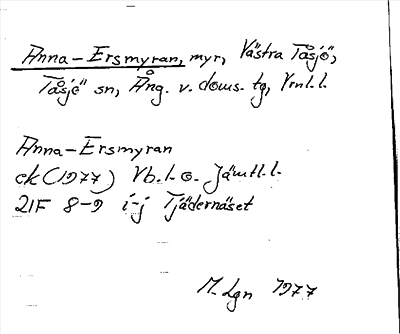 Anna-Ersmyran, myr, Västra Tåsjö,
Tåsjö sn, Ång. v. doms. tg, Vrnl.l.
Anna-Ersmyran
ek (1977) Vb.l. o. Jämtl.l.
21F 8-9 i-j Tjädernäset
M. Lgn 1977